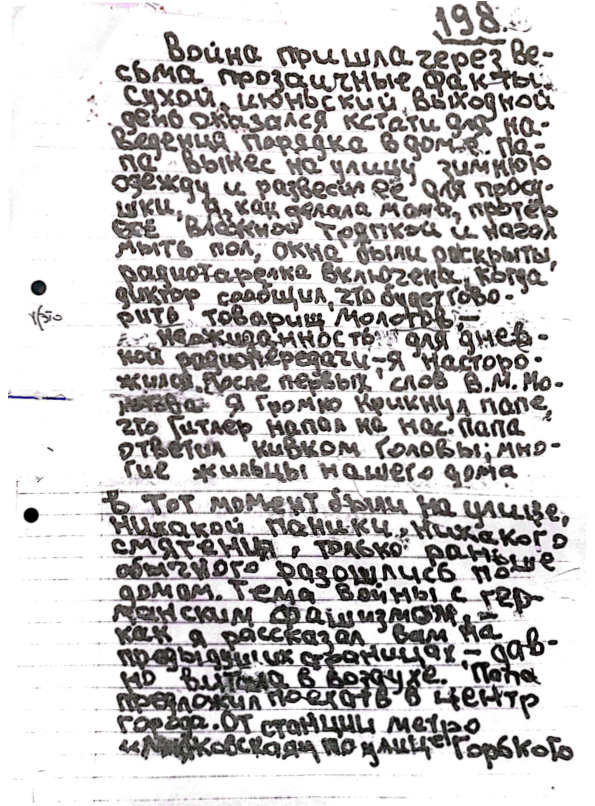 198.
Война пришла через ве-
сьма прозаичные факты.
Сухой июньский выходной
день оказался кстати для на-
ведения порядка в доме. Па-
па вынес на улицу зимнюю
одежду и развесил её для просу-
шки, я, как делала мама, протёр
её влажной тряпкой и начал
мыть пол, окна были раскрыты,
радиотарелка включена, когда
диктор сообщил, что будет гово-
рить товарищ Молотов, –
неожиданность для днев-
ной радиопередачи, – я насторо-
жился. После первых слов В.М. Мо-
лотова я громко крикнул папе,
что Гитлер напал на нас. Папа
ответил кивком головы; мно-
гие жильцы нашего дома
в тот момент были на улице,
никакой паники, никакого
смятения, только раньше
обычного разошлись по
домам. Тема войны с гер-
манским фашизмом, –
как я рассказал вам на
предыдущих страницах, – дав-
но витала в воздухе. Папа
предложил поехать в центр
города. От станции метро
«Маяковская» по улице Горького